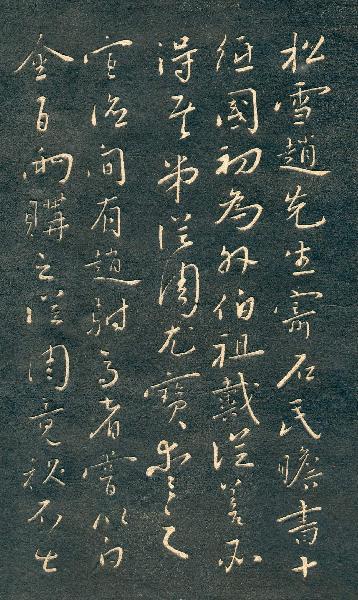 松雪趙先生寄石民瞻書十
紙國初為外伯祖戴從善所
得其弟從周尤寶愛之
宣德間有趙駙馬者嘗以白
金百兩購之從周竟秘不出